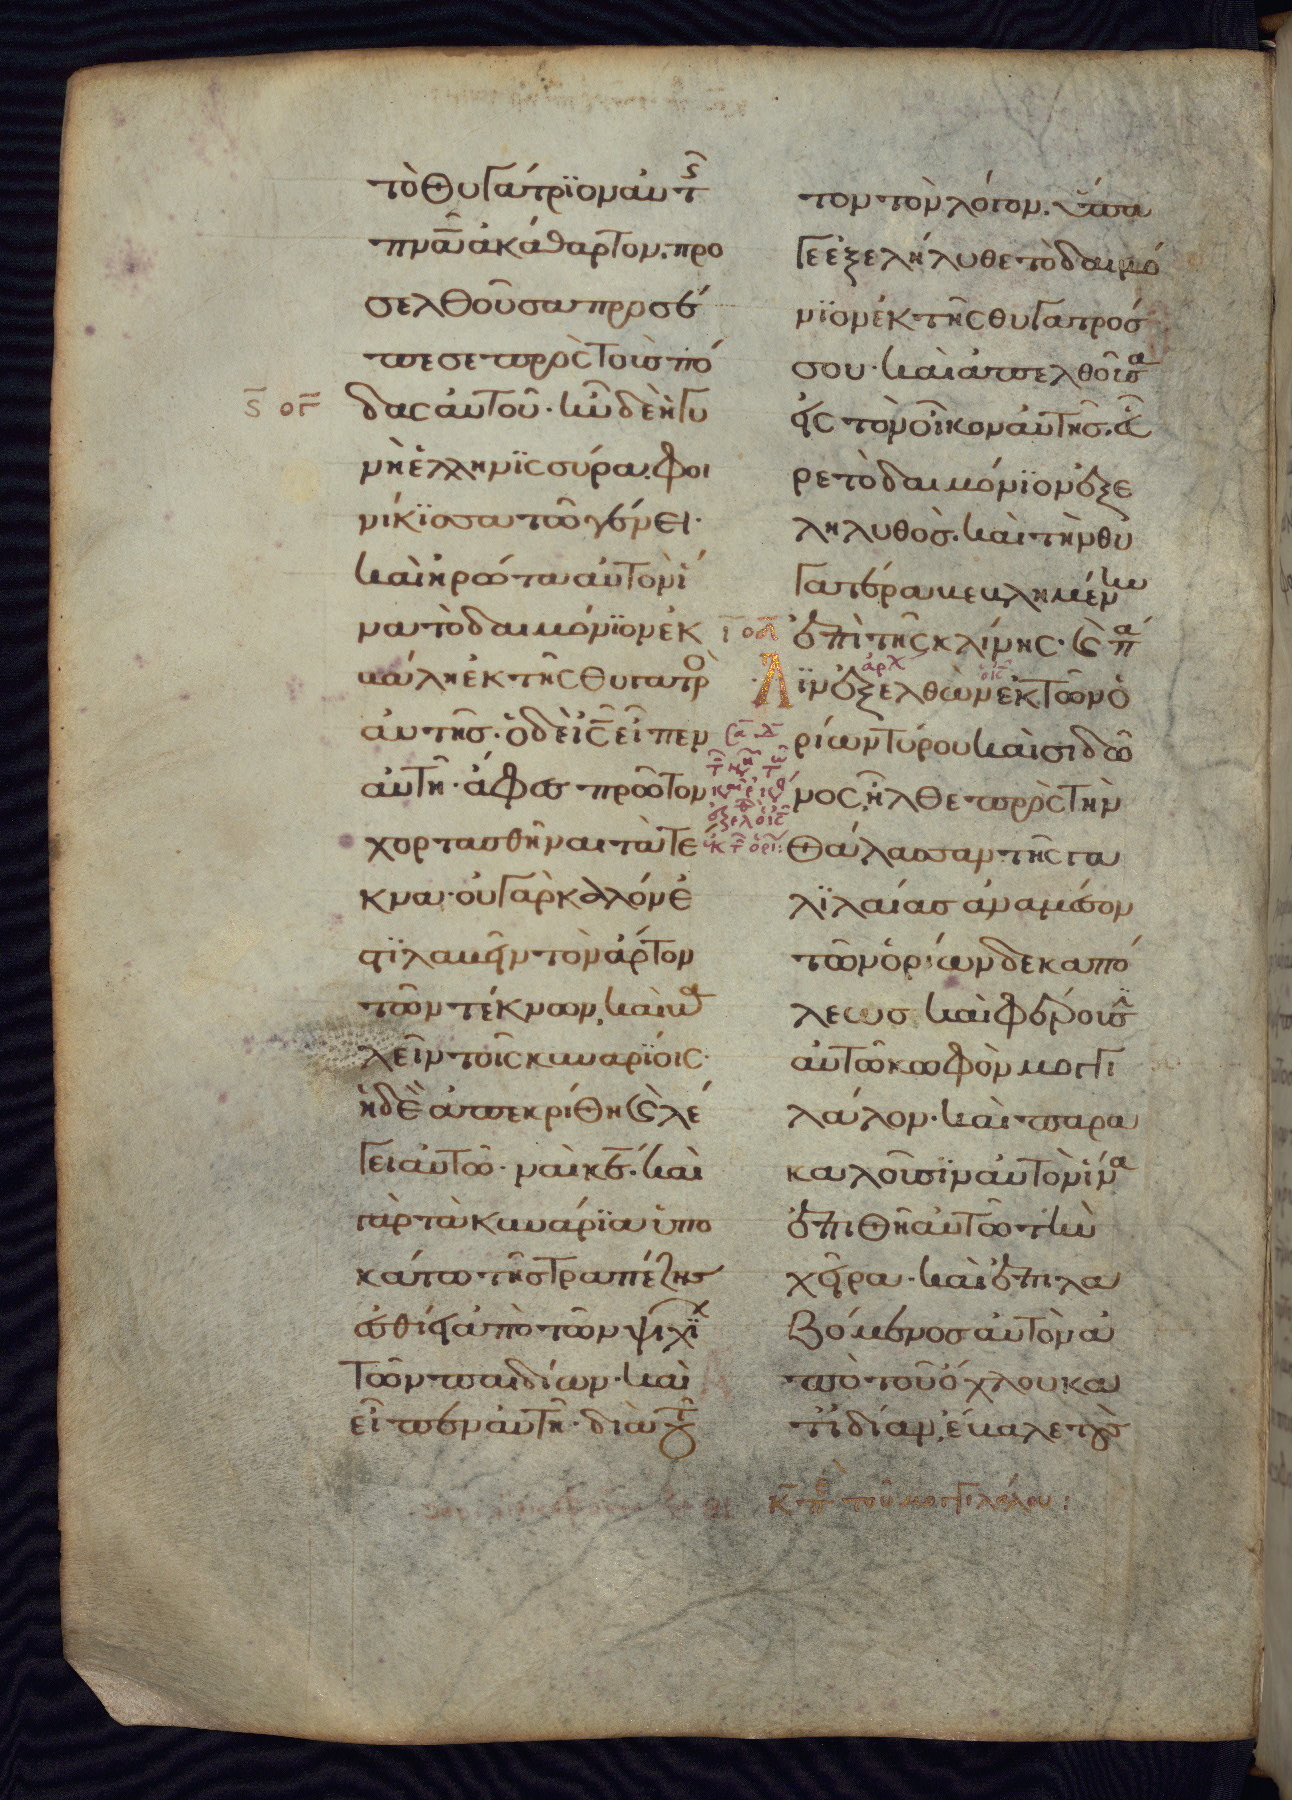 τὸ θυγάτριον αυτῆς
πνᾶ ἀκάθαρτον. προ
σελθοῦσα προσέ
πεσε πρὸς τοὺς πό
ς ογ
δας αὐτοῦ· ἦν δὲ ἡ γυ
νὴ ἑλληνῒς σύρα. φοι
νίκϊσσα τῶ γένει·
καὶ ἠρώτα αυτὸν ἵ
να τὸ δαιμόνϊον ἐκ
βάλη ἐκ τῆς θυγατρὸ
αυτῆς· ὁ δὲ ἰς εἶπεν
αὐτῆ· ἄφες πρῶτον
χορτασθῆναι τὰ τέ
κνα· οὐ γὰρ καλόν ἐ
στϊ λαβεῖν τὸν ἄρτον
τῶν τέκνων, καὶ βα
λεῖν τοῖς κυναρϊοις·
ἡ δὲ ἀπεκρίθη καὶ λέ
γει αὐτῶ· ναὶ κε. καὶ
γὰρ τὰ κυνάρϊα ὑπο
κάτω τῆς τραπέζης
ἐσθίει ἀπὸ τῶν ψιχΐ
τῶν παιδίων· καὶ
εἶπεν αὐτῆ· διὰ τοῦ
τον τὸν λόγον. ὕπα
γε ἐξελήλυθε τὸ δαιμό
νϊον ἐκ τῆς θυγατρός
σου· καὶ ἀπελθοῦσα
εἰς τὸν οἶκον αὐτῆς. εὗ
ρε τὸ δαιμόνϊον ἐξε
ληλυθός. καὶ τὴν θυ
γατέρα βεβλημένην
ι οδ
ἐπὶ τῆς κλίνης· καὶ πά
ἀρχ
λϊν ἐξελθὼν ἐκ τῶν ὁ
ρίων τύρου καὶ σιδῶ
νος, ἦλθε πρὸς τὴν
θάλασσαν τῆς γα
λϊλαίας ἀναμέσον
τῶν ὁρίων δεκαπό
λεως καὶ φέρουσϊ
αὐτῶ κωφὸν μογγι
λάλον· καὶ παρα
καλοῦσϊν αὐτὸν ἵνα
ἐπιθῆ αὐτῶ τὴν
χεῖρα· καὶ ἐπιλα
βόμενος αὐτὸν ἀ
πὸ τοῦ ὄχλου κα
τϊδίαν, ἔβαλε τοὺς
κ π τοῦ μογγιλάλου: